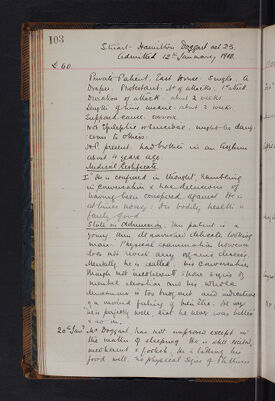 103
Stuart Hamilton Doggart aet 23.
Admitted 12th January 1910.
£ 60
Private Patient. East House. Single. A
Draper. Protestant. No of attacks, 1st attack
Duration of attack about 2 weeks.
Length of time insane about 2 weeks.
Supposed cause
Not Epileptic or Suicidal, might be dang-
erous to others.
had brother in an Asylum
about 4 years ago.
Medical Certificate
1st He is confused in thought, rambling
in conversation & has delusions of
having been conspired against. He is
at times noisy. His bodily health is
fairly good.
State on Admission This patient is a
young thin & somewhat delicate looking
man. Physical examination however
does not reveal any organic disease.
Mentally he is his conversation
though not incoherent shows signs of
mental elevation and his whole
demeanour is too buoyant and indicative
of a morbid feeling of He says
he is perfectly well that he never was better
& so on.
20th Jany Mr Doggart has not improved except in
the matter of sleeping. He is still excited
incoherent & foolish. He is taking his
food well, no physical signs of